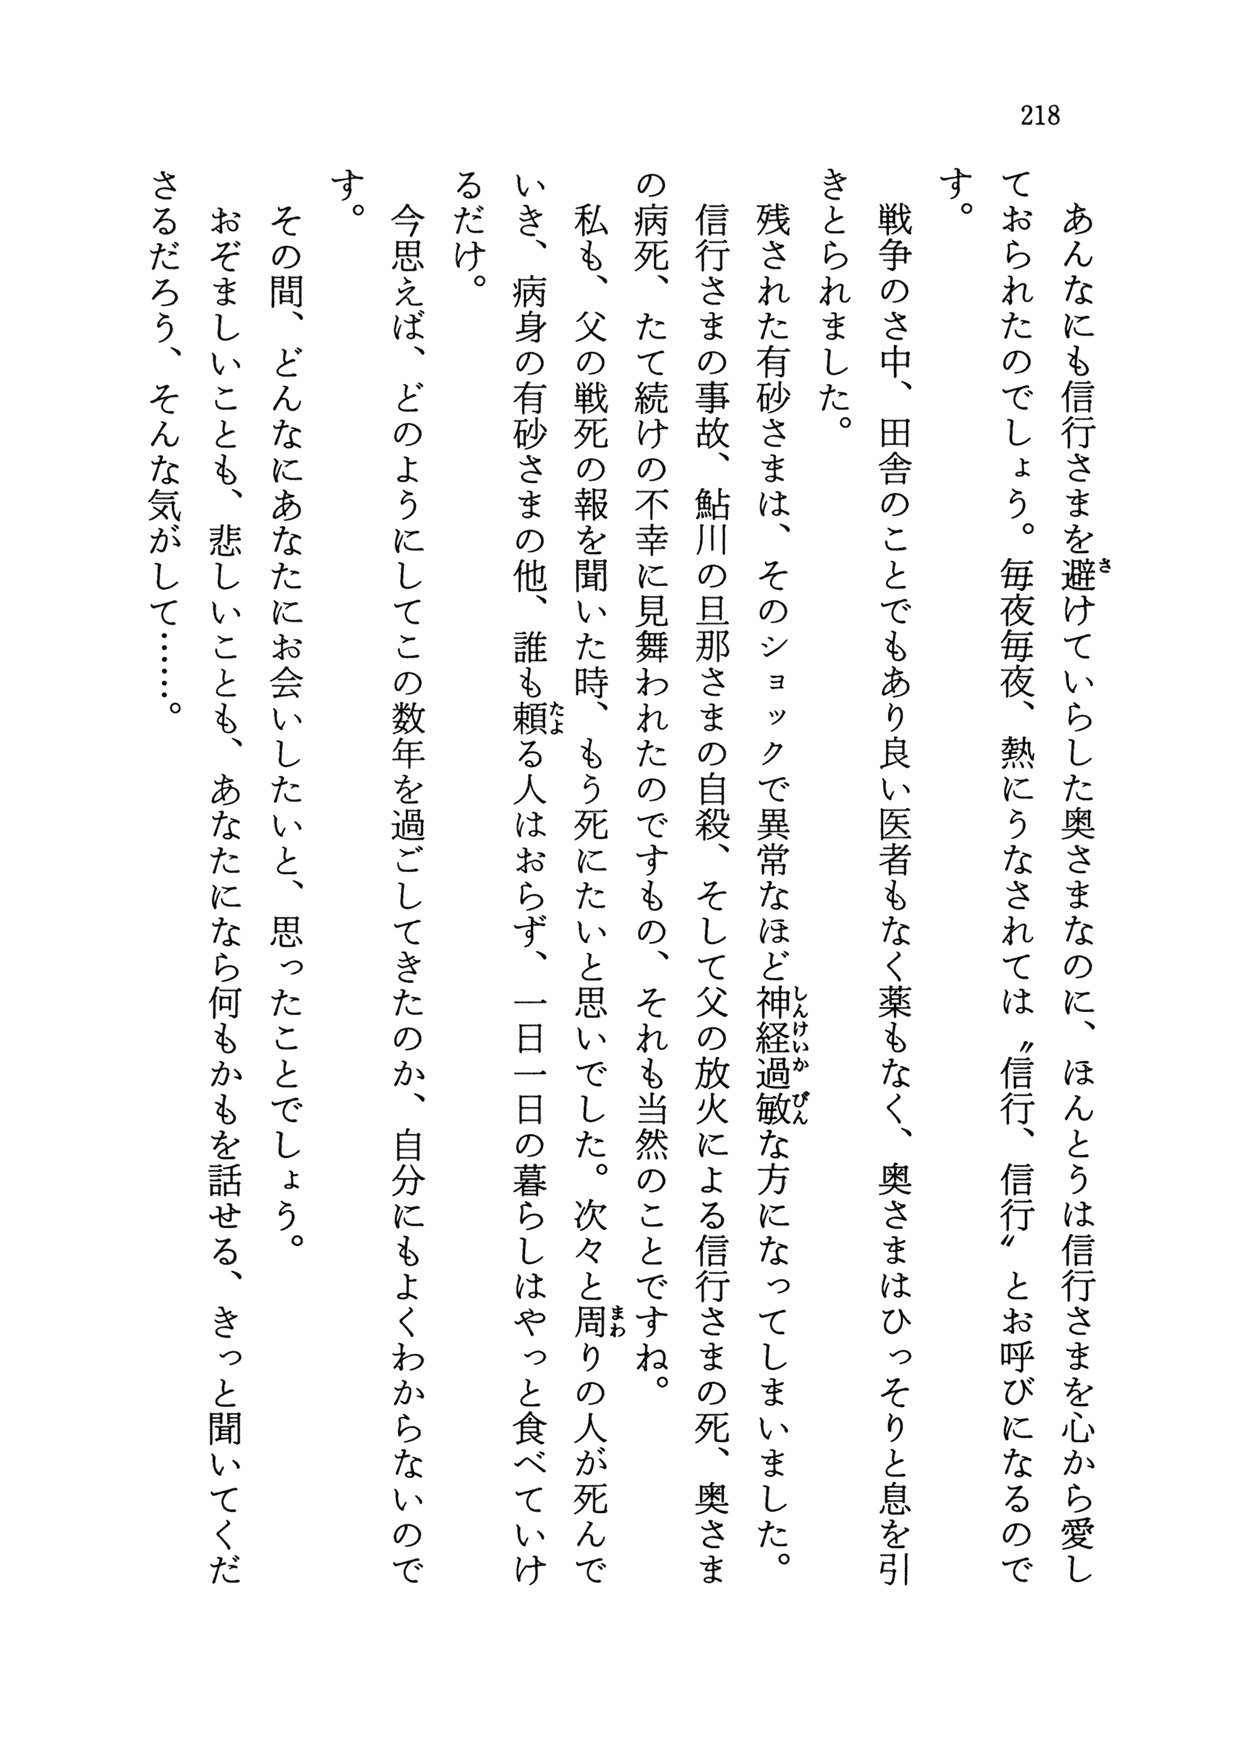 218
あんなにも信行さまを避けていらした奥さまなのに、ほんとうは信行さまを心から愛し
ておられたのでしょう。毎夜毎夜、熱にうなされては〝信行、信行〟とお呼びになるので
す。
戦争のさ中、田舎のことでもあり良い医者もなく薬もなく、奥さまはひっそりと息を引
きとられました。
残された有砂さまは、そのショックで異常なほど神経過敏な方になってしまいました。
信行さまの事故、鮎川の旦那さまの自殺、そして父の放火による信行さまの死、奥さま
の病死、たて続けの不幸に見舞われたのですもの、それも当然のことですね。
私も、父の戦死の報を聞いた時、もう死にたいと思いでした。次々と周りの人が死んで
いき、病身の有砂さまの他、誰も頼る人はおらず、一日一日の暮らしはやっと食べていけ
るだけ。
今思えば、どのようにしてこの数年を過ごしてきたのか、自分にもよくわからないので
す。
その間、どんなにあなたにお会いしたいと、思ったことでしょう。
おぞましいことも、悲しいことも、あなたになら何もかもを話せる、きっと聞いてくだ
さるだろう、そんな気がして……。